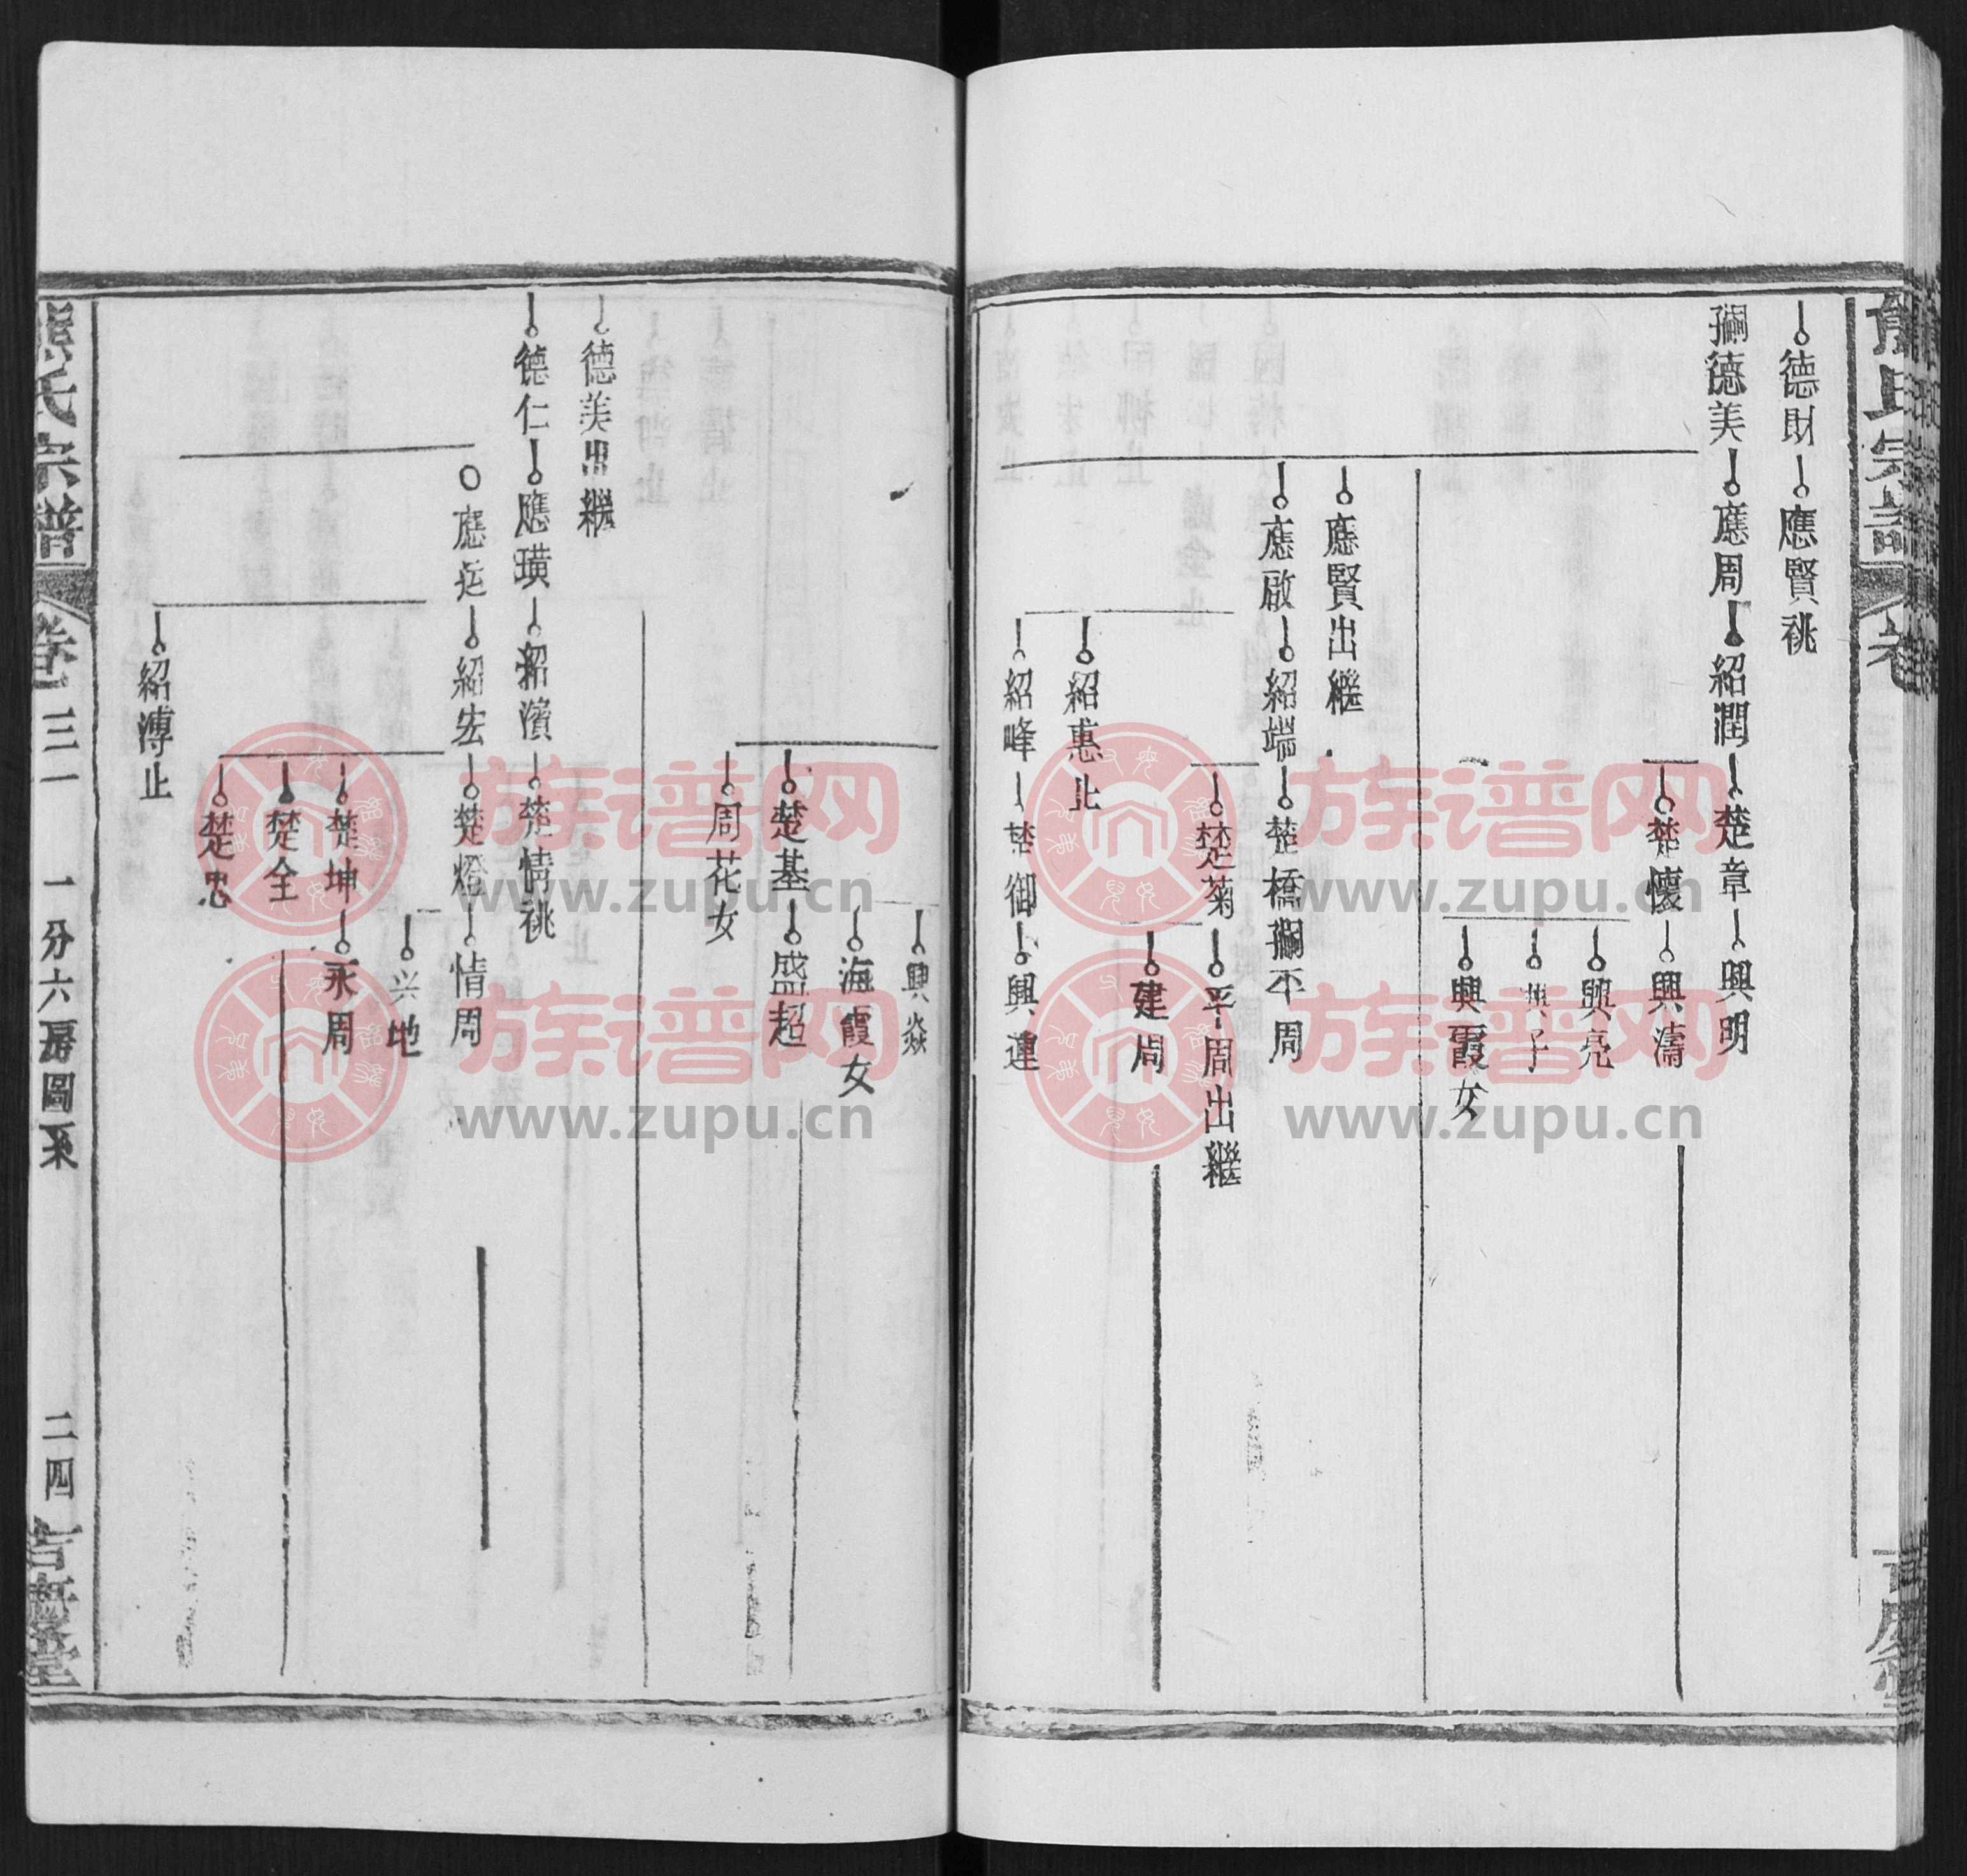 德財 應賢祧
德美 應周 紹潤 楚章 興明
楚懷 興濤
興亮
興子
興霞女
應賢出繼
應啟 紹端 楚橋 丕周
楚菊 平周出繼
建周
紹惠止
紹峰 楚御 興運
興焱
海霞女
楚基 盛超
周花女
德美出繼
德仁 應璜 紹濱 楚情祧
應 紹宏 楚燈 情周
兴地
楚坤 永周
楚全
楚忠
紹溥止
熊氏宗譜
卷三一
一分六房圖系
二四
族谱网
www.zupu.cn
族谱网
www.zupu.cn
族谱网
www.zupu.cn
族谱网
www.zupu.cn